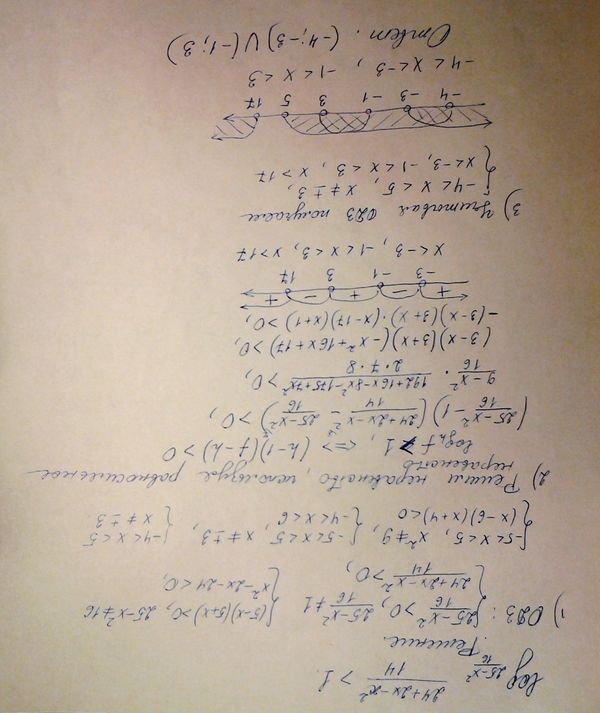 log_{(25-x²)/16} (24+2x-x²)/14 > 1.
Решение.
1) ОДЗ: { (25-x²)/16 > 0, (25-x²)/16 ≠ 1 { (5-x)(5+x) > 0, 25-x² ≠ 16
(24+2x-x²)/14 > 0, x²-2x-24 < 0,
{ -5 < x < 5, x² ≠ 9, { -5 < x < 5, x ≠ ±3, { -4 < x < 5
(x-6)(x+4) < 0 -4 < x < 6 x ≠ ±3
2) Решим неравенство, используя равносильное
неравенство
log_h f > 1, <=> (h-1)(f-h) > 0
((25-x²)/16 - 1)((24+2x-x²)/14 - (25-x²)/16) > 0,
(9-x²)/16 · (192+16x-8x²-175+7x²)/(2·7·8) > 0,
(3-x)(3+x)(-x²+16x+17) > 0,
-(3-x)(3+x)·(x-17)(x+1) > 0,
+ - + - +
-3 -1 3 17
x < -3, -1 < x < 3, x > 17
3) Учитывая ОДЗ получаем
{ -4 < x < 5, x ≠ ±3,
x < -3, -1 < x < 3, x > 17
-4 -3 -1 3 5 17
-4 < x < -3, -1 < x < 3
Ответ. (-4; -3) ∪ (-1; 3)